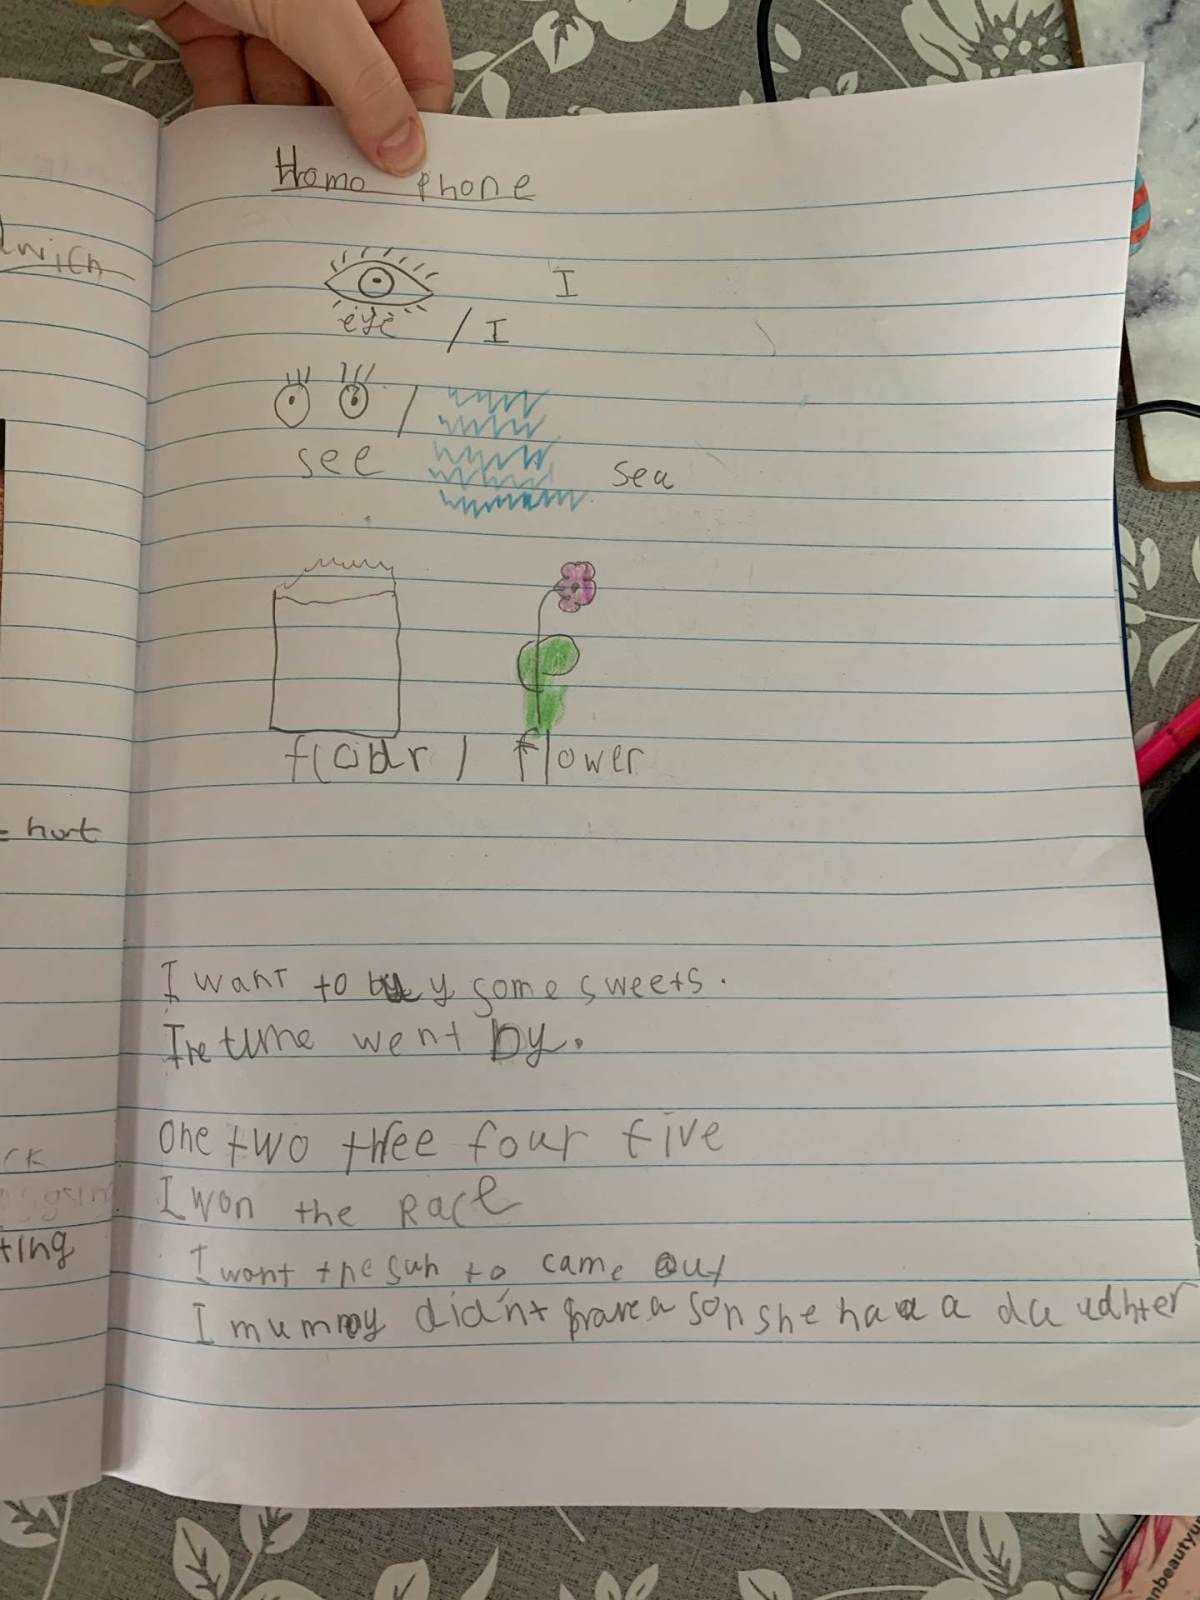 Homo phone
I
eye / I
/
see sea
flour / flower
I want to buy some sweets.
The time went by.
one two three four five
I won the Race
I want the sun to came out
I mummy didn't have a son she had a daudhter
dwich
= hurt
ck
ting